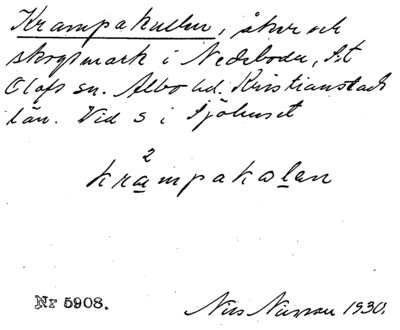 Krampakullen, åker och
skogsmark i Nedeboda, S:t
Olofs sn. Albo hd. Kristianstads
län. Vid S i Sjöhuset
2
krampakolen
Nr 5908.
Nils Nilsson 1930.